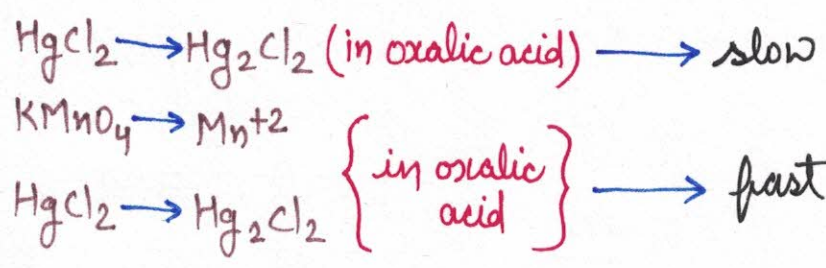 HgCl₂ → Hg₂Cl₂ (in oxalic acid) → slow
KMnO₄ → Mn+2
HgCl₂ → Hg₂Cl₂ {in oxalic acid} → fast